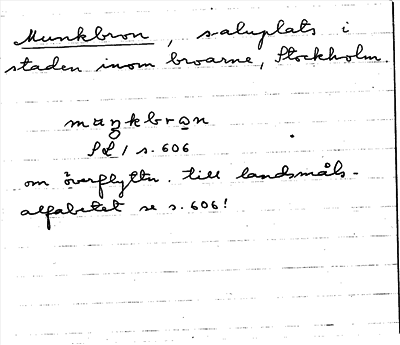 Munkbron, saluplats i
staden inom broarne, Stockholm.
muŋkbrωn
SL 1 s. 606
om överflyttn. till landsmåls-
alfabetet se s. 606!